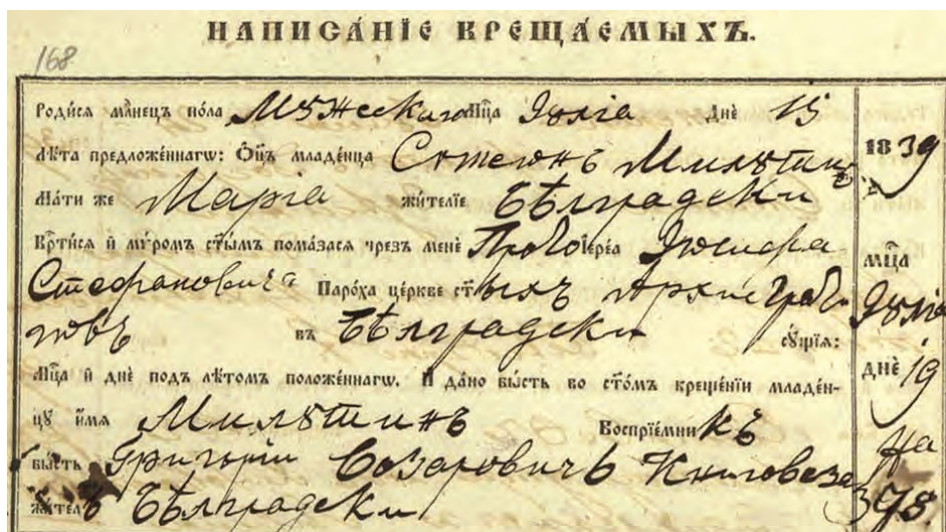 НАПИСА́НЇЕ КРЕЩА́ЕМЫХЪ.
168
Роди́сѧ мл҃нецъ по́ла Мꙋжескагѡ Мц҃а Іꙋліа Днѐ 15
Лѣ́та предложе́ннагѡ: О҆ц҃ъ младе́нца Стеѳанъ Милꙋтинъ 1839
Ма́ти же Марія жи́телїе Бѣлградски
Кр҃ти́сѧ и҆ мѵ́ромъ ст҃ы́мъ пома́засѧ чрезъ менѐ Прото Їере́а Іосифа мц҃а
Стефановича Паро́ха це́ркве ст҃ыхъ Архистрати Іꙋліа
говъ въ Бѣлградски сꙋ́щїѧ:
Мц҃а и҆ днѐ подъ лѣ́томъ положе́ннагѡ. И҆ да́но бы́сть во ст҃о́мъ креще́нїи младе́н- днѐ 19
цꙋ и҆́мѧ Милꙋтинъ Воспрїе́мникъ На
бы́сть Григорій Возаровичъ Книговеза
жи́тель Бѣлградски 375